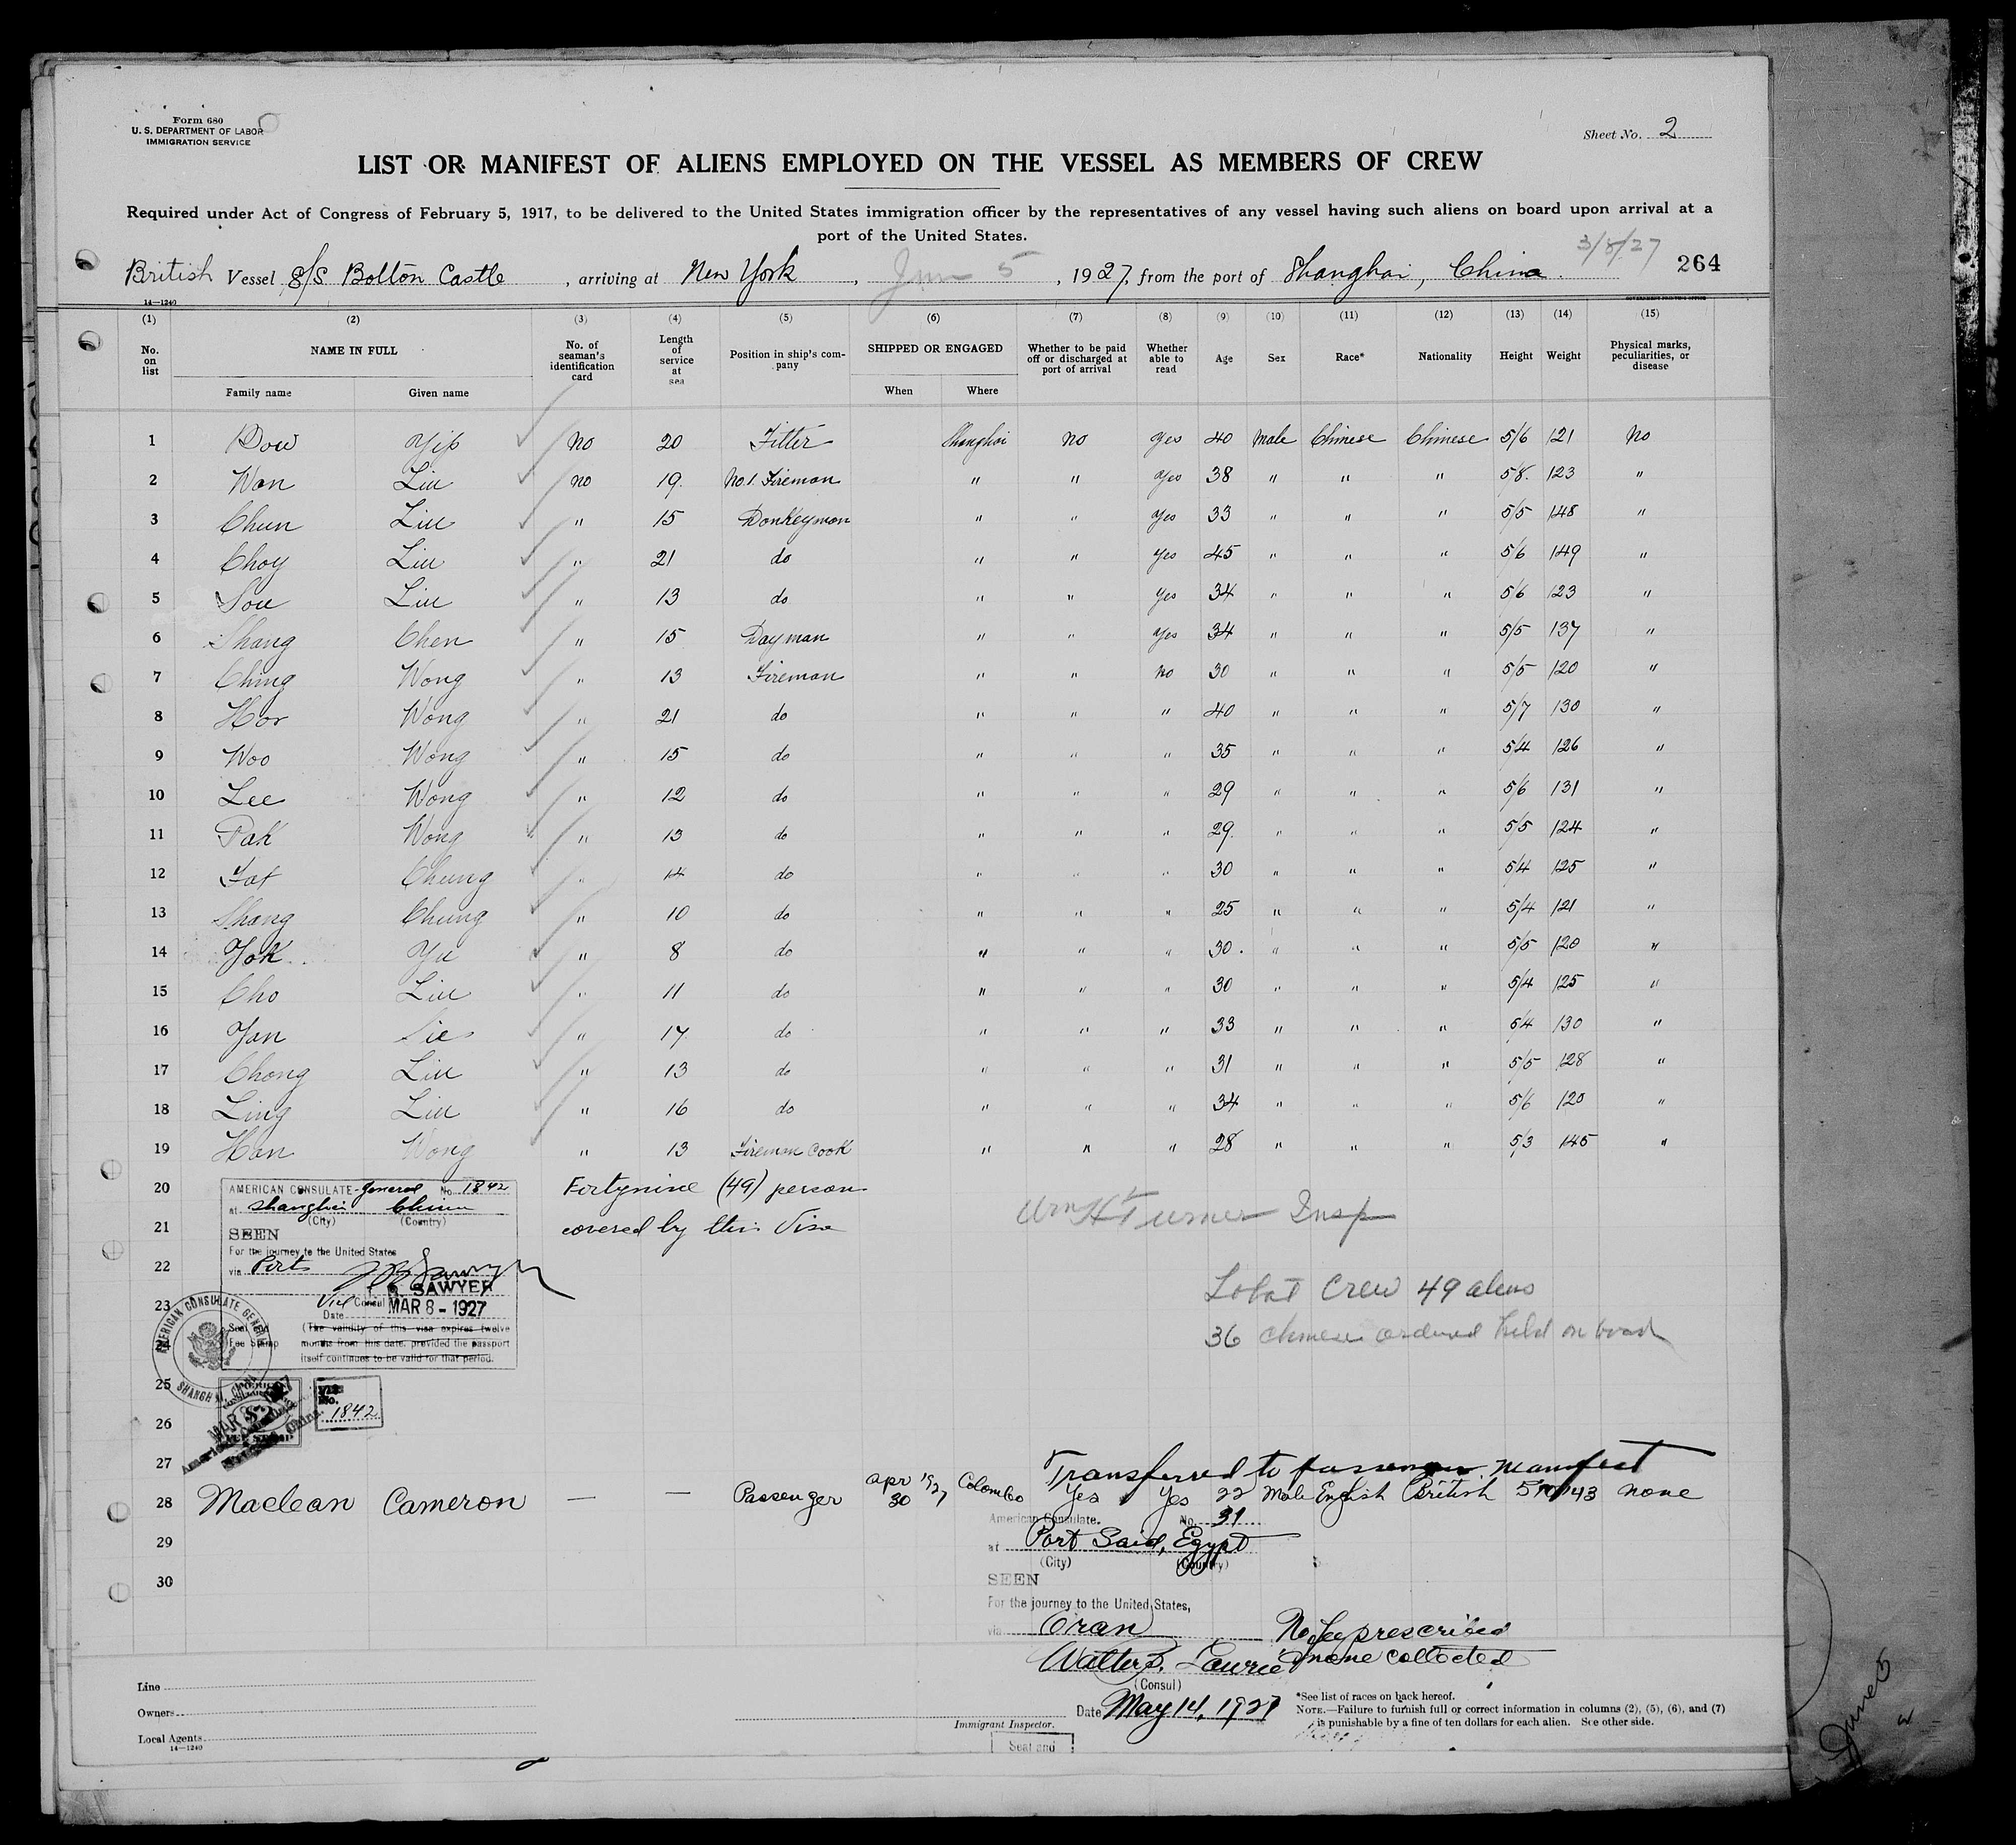 Form 680
U. S. DEPARTMENT OF LABOR
IMMIGRATION SERVICE
Sheet No. 2
LIST OR MANIFEST OF ALIENS EMPLOYED ON THE VESSEL AS MEMBERS OF CREW
Required under Act of Congress of February 5, 1917, to be delivered to the United States immigration officer by the representatives of any vessel having such aliens on board upon arrival at a
port of the United States.
3/8/27
264
British Vessel S/S Bolton Castle, arriving at New York, June 5, 1927, from the port of Shanghai, China.
14—1240
GOVERNMENT PRINTING OFFICE
(1) (2) (3) (4) (5) (6) (7) (8) (9) (10) (11) (12) (13) (14) (15)
No. on list NAME IN FULL No. of seaman's identification card Length of service at sea Position in ship's company SHIPPED OR ENGAGED Whether to be paid off or discharged at port of arrival Whether able to read Age Sex Race* Nationality Height Weight Physical marks, peculiarities, or disease
Family name Given name When Where
1 Dow Yip No 20 Fitter Shanghai No Yes 40 Male Chinese Chinese 5/6 121 No
2 Wan Liu No 19 No. 1. Fireman " " Yes 38 " " " 5/8. 123 "
3 Chun Liu " 15 Donkeyman " " Yes 33 " " " 5/5 148 "
4 Choy Liu " 21 do " " Yes 45 " " " 5/6 149 "
5 Sou Liu " 13 do " " Yes 34 " " " 5/6 123 "
6 Shang Chen " 15 Dayman " " Yes 34 " " " 5/5 137 "
7 Ching Wong " 13 Fireman " " No 30 " " " 5/5 120 "
8 Hor Wong " 21 do " " " 40 " " " 5/7 130 "
9 Woo Wong " 15 do " " " 35 " " " 5/4 126 "
10 Lee Wong " 12 do " " " 29 " " " 5/6 131 "
11 Pak Wong " 13 do " " " 29. " " " 5/5 124 "
12 Fat Cheung " 14 do " " " 30 " " " 5/4 125 "
13 Shang Chung " 10 do " " " 25 " " " 5/4 121 "
14 Yok Yu " 8 do " " " 30. " " " 5/5 120 "
15 Cho Liu " 11 do " " " 30 " " " 5/4 125 "
16 Yan Sie " 17. do " " " 33 " " " 5/4 130 "
17 Chong Liu " 13 do " " " 31 " " " 5/5 128 "
18 Ling Liu " 16 do " " " 34 " " " 5/6 120 "
19 Han Wong " 13 Fireman Cook " " " 28 " " " 5/3 145 "
20
21
22
23
25
26
27
AMERICAN CONSULATE-General No. 1842
at Shanghai China
(City) (Country)
SEEN
For the journey to the United States
via Ports
SAWYER
Vice Consul
Date MAR 8 - 1927
(The validity of this visa expires twelve
months from this date, provided the passport
itself continues to be valid for that period.
AMERICAN CONSULATE GENERAL
SHANGHAI, CHINA
No. 1842
Fortynine (49) person
covered by this Visa
Wm H Turner Insp
Total Crew 49 aliens
36 Chinese ordered held on board
Transferred to passenger manifest
28 Maclean Cameron — — Passenger Apr 30 1927 Colombo Yes Yes 22 Male English British 5'10 143 none
29
30
American Consulate. No. 31
at Port Said, Egypt
(City) (Country)
SEEN
For the journey to the United States,
via Oran
No fee prescribed
none collected
Walter B. Lourie
(Consul)
Date May 14, 1927
Immigrant Inspector.
Seal and
Line
Owners
Local Agents
14—1240
*See list of races on back hereof.
NOTE.—Failure to furnish full or correct information in columns (2), (5), (6), and (7)
is punishable by a fine of ten dollars for each alien. See other side.
June 5